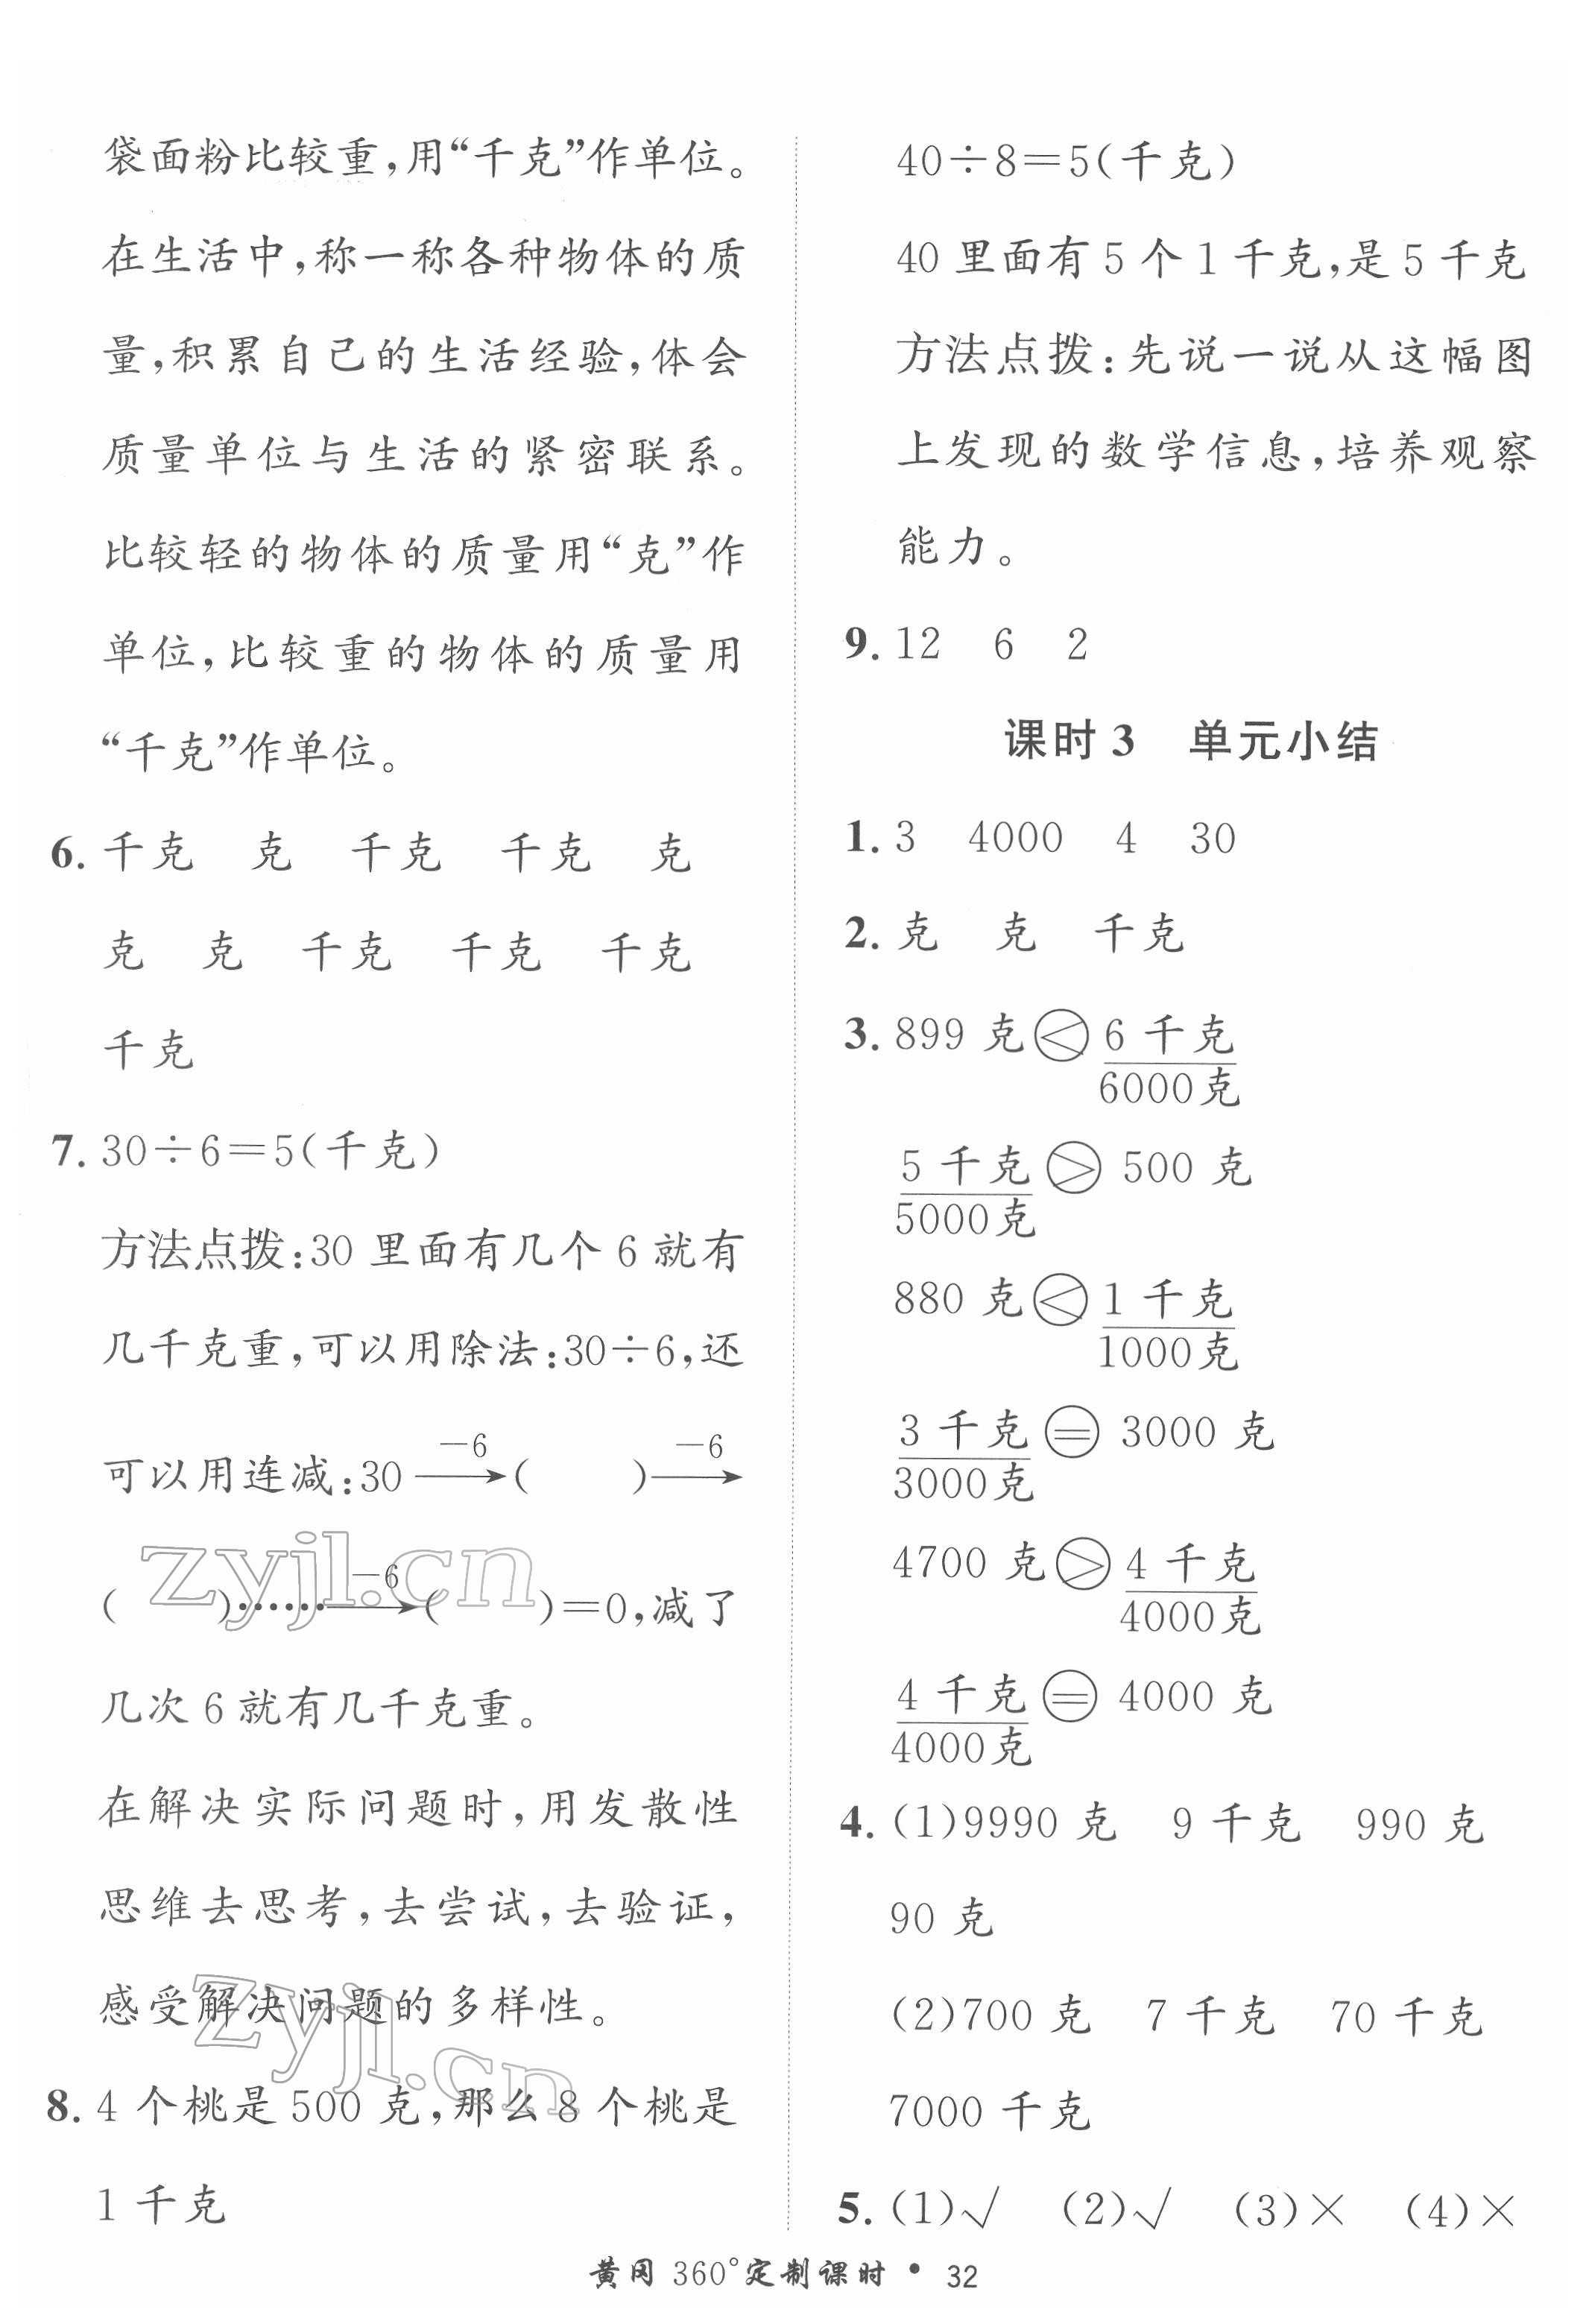 袋面粉比较重,用“千克”作单位。
在生活中,称一称各种物体的质
量,积累自己的生活经验,体会
质量单位与生活的紧密联系。
比较轻的物体的质量用“克”作
单位,比较重的物体的质量用
“千克”作单位。
6. 千克 克 千克 千克 克
克 克 千克 千克 千克
千克
7. 30÷6=5(千克)
方法点拨:30 里面有几个 6 就有
几千克重,可以用除法:30÷6,还
可以用连减:30 —−6→( )—−6→
( )……—−6→( )=0,减了
几次 6 就有几千克重。
在解决实际问题时,用发散性
思维去思考,去尝试,去验证,
感受解决问题的多样性。
8. 4 个桃是 500 克,那么 8 个桃是
1 千克
40÷8=5(千克)
40 里面有 5 个 1 千克,是 5 千克
方法点拨:先说一说从这幅图
上发现的数学信息,培养观察
能力。
9. 12 6 2
课时 3 单元小结
1. 3 4000 4 30
2. 克 克 千克
3. 899 克 < 6 千克
6000克
5 千克 > 500 克
5000克
880 克 < 1 千克
1000克
3 千克 = 3000 克
3000克
4700 克 > 4 千克
4000克
4 千克 = 4000 克
4000克
4. (1)9990 克 9 千克 990 克
90 克
(2)700 克 7 千克 70 千克
7000 千克
5. (1)√ (2)√ (3)× (4)×
黄冈 360°定制课时 • 32
zyjl.cn
zyjl.cn